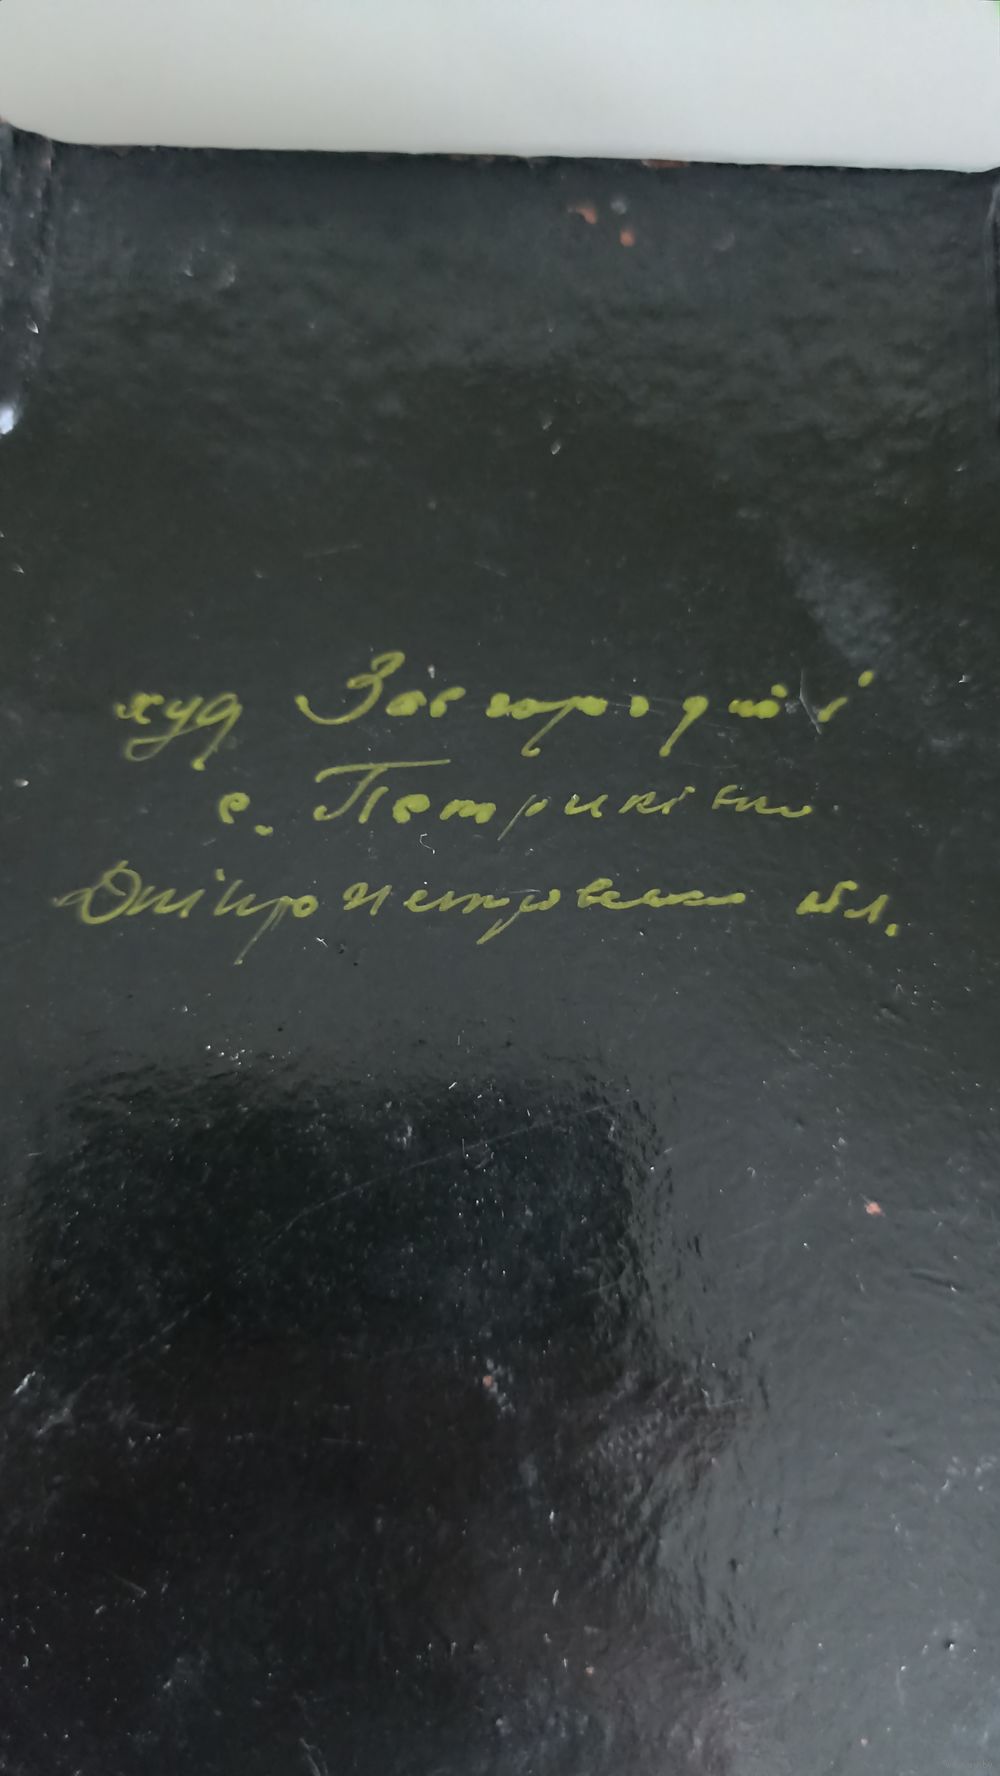 худ Завгородній
с. Петриківка
Дніпропетровська обл.